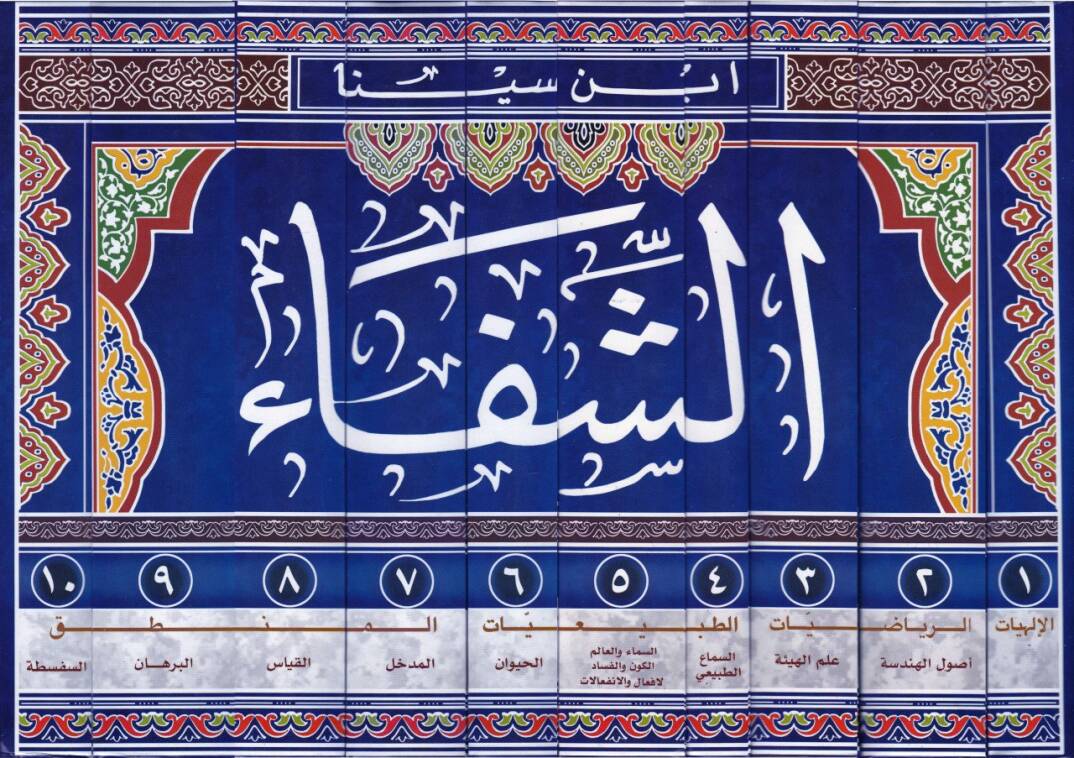 ابن سينا
الشفاء
١ ٢ ٣ ٤ ٥ ٦ ٧ ٨ ٩ ١٠
الإلهيات الرياضيات الطبيعيات المنطق
أصول الهندسة
علم الهيئة
السماع
الطبيعي
السماء والعالم
الكون والفساد
لافعال والانفعالات
الحيوان
المدخل
القياس
البرهان
السفسطة